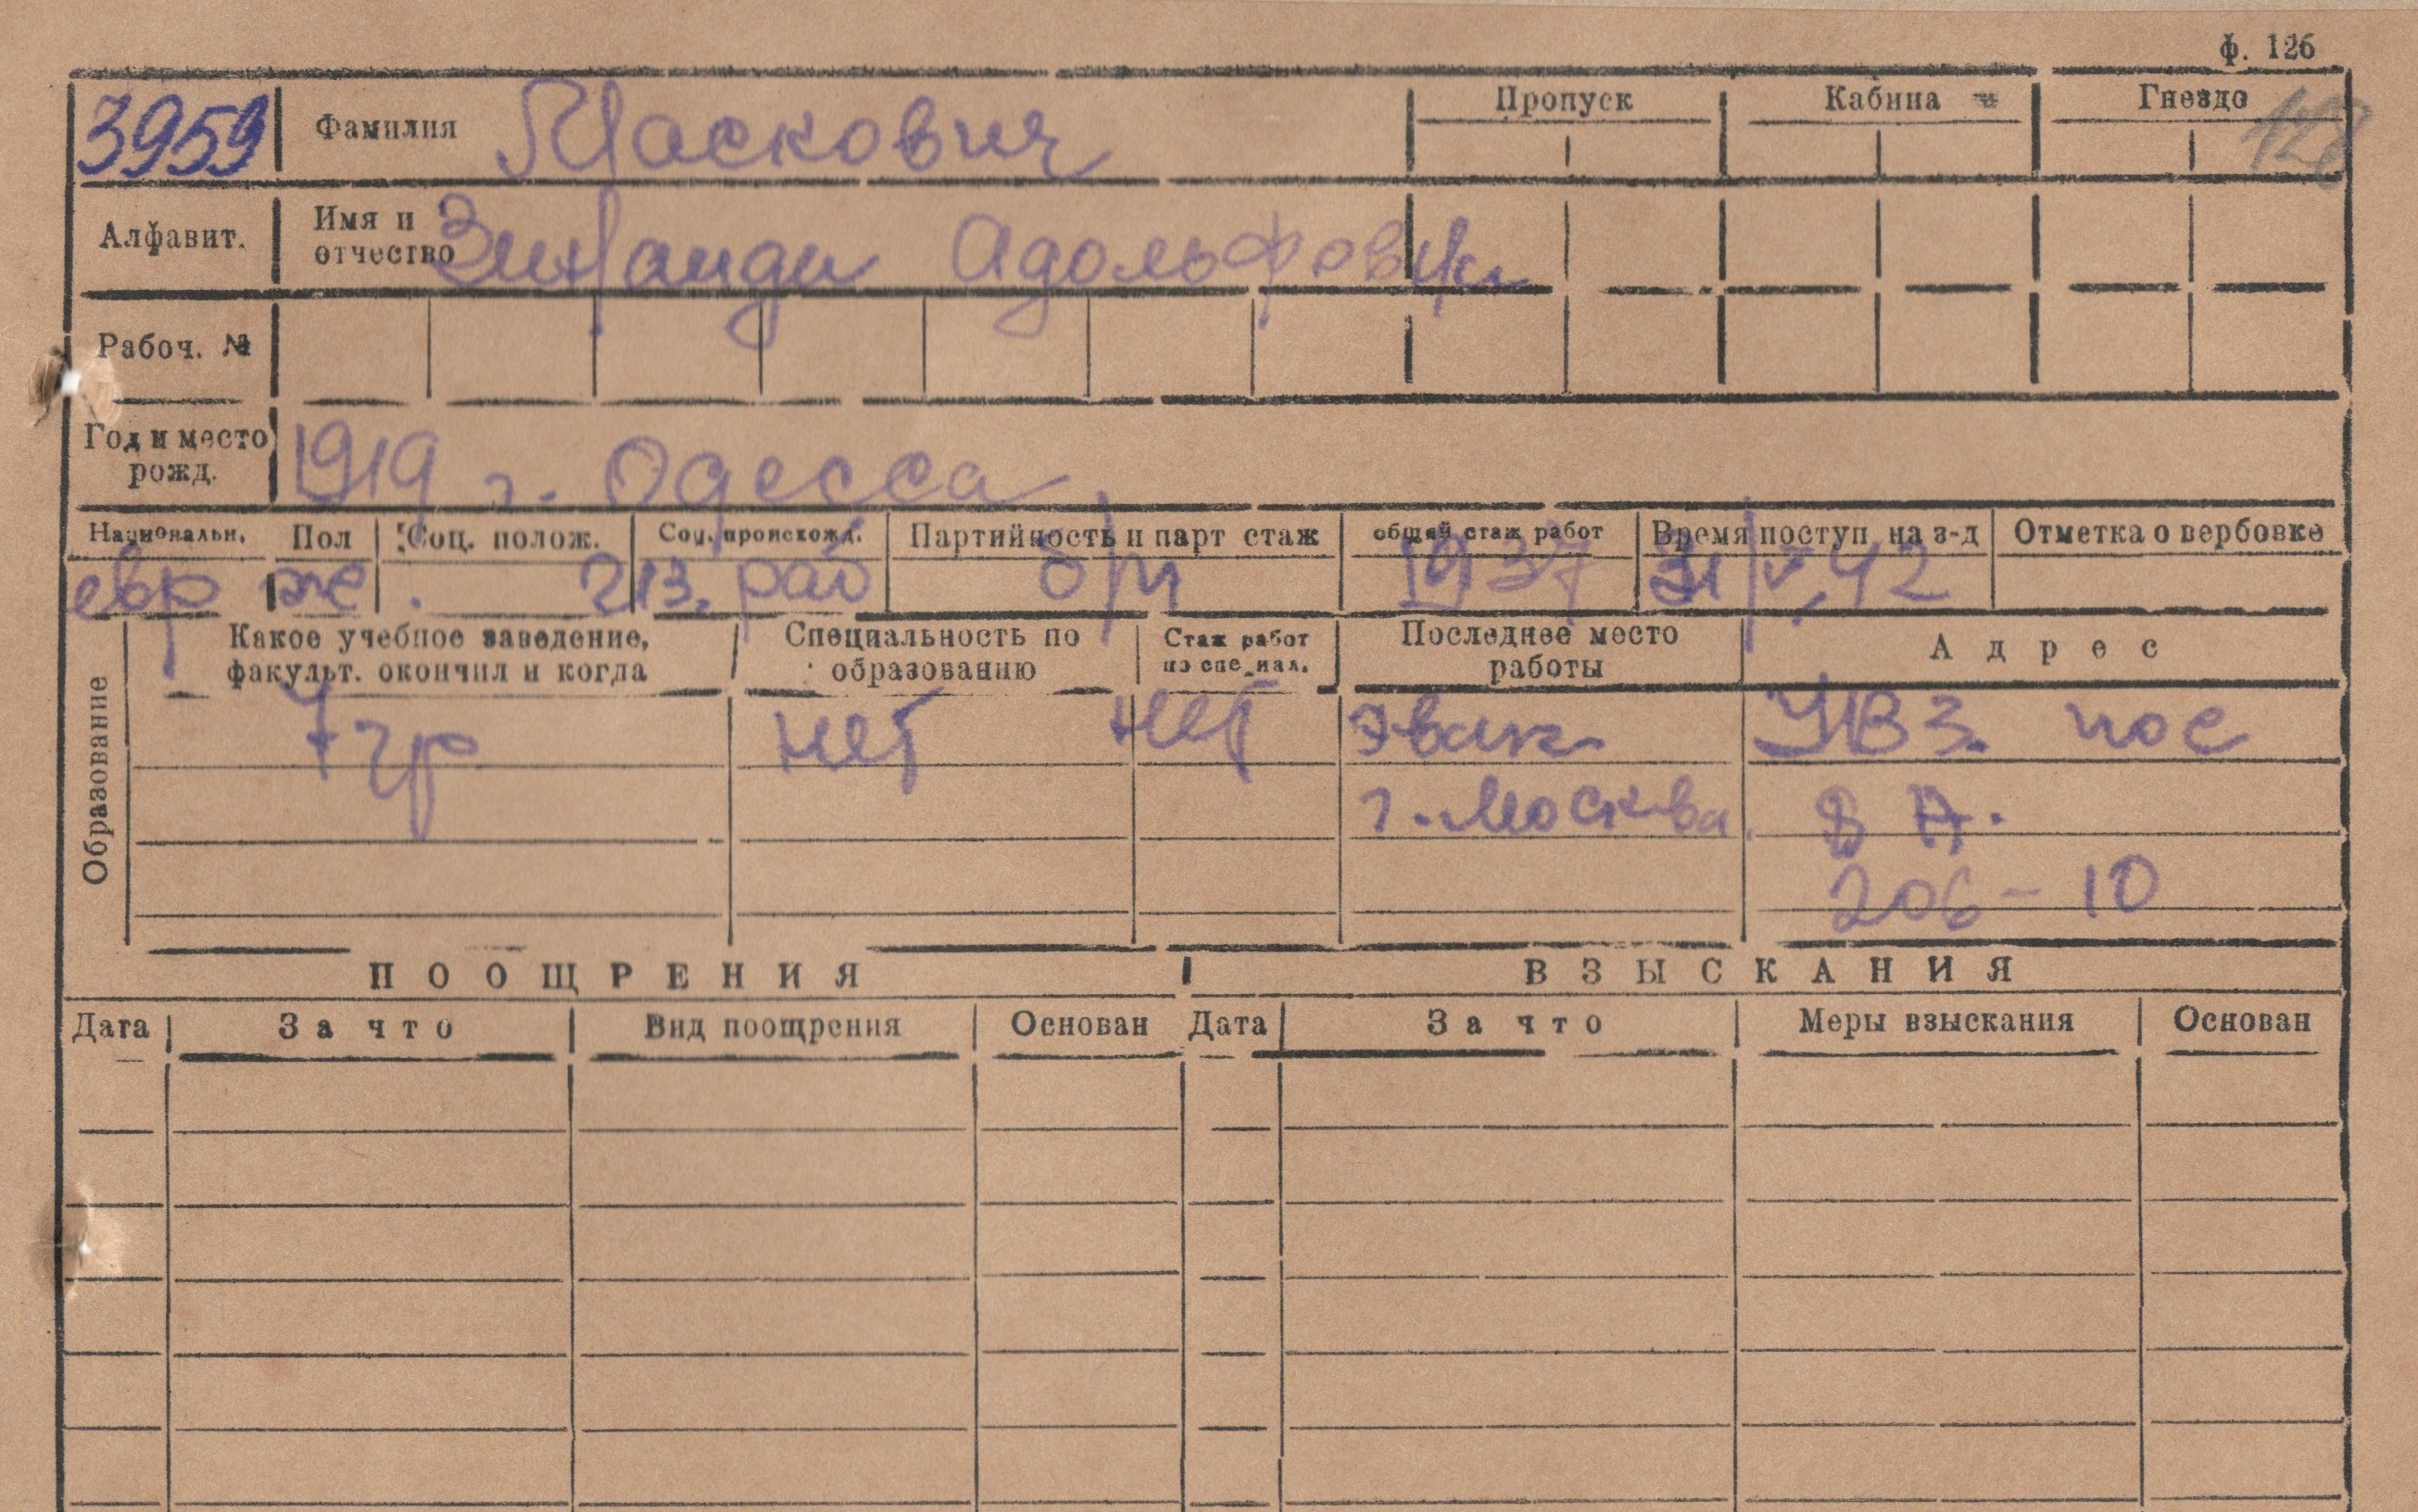 ф. 126
3959 Фамилия Маскович Пропуск Кабина Гнездо 128
Алфавит. Имя и отчество Адольфовн
Рабоч. №
Год и место рожд. 1919 г. Одесса
Национальн. Пол Соц. полож. Соц. происхожд. Партийность и парт стаж общий стаж работ Время поступ на з-д Отметка о вербовке
евр ж. из. раб б/п 1937 31/V.42
Образование
Какое учебное заведение, факульт. окончил и когда Специальность по образованию Стаж работ по специал. Последнее место работы Адрес
7 гр нет нет Эвак УВЗ. пос
г. Москва. 8 А.
206-10
ПООЩРЕНИЯ ВЗЫСКАНИЯ
Дата За что Вид поощрения Основан Дата За что Меры взыскания Основан